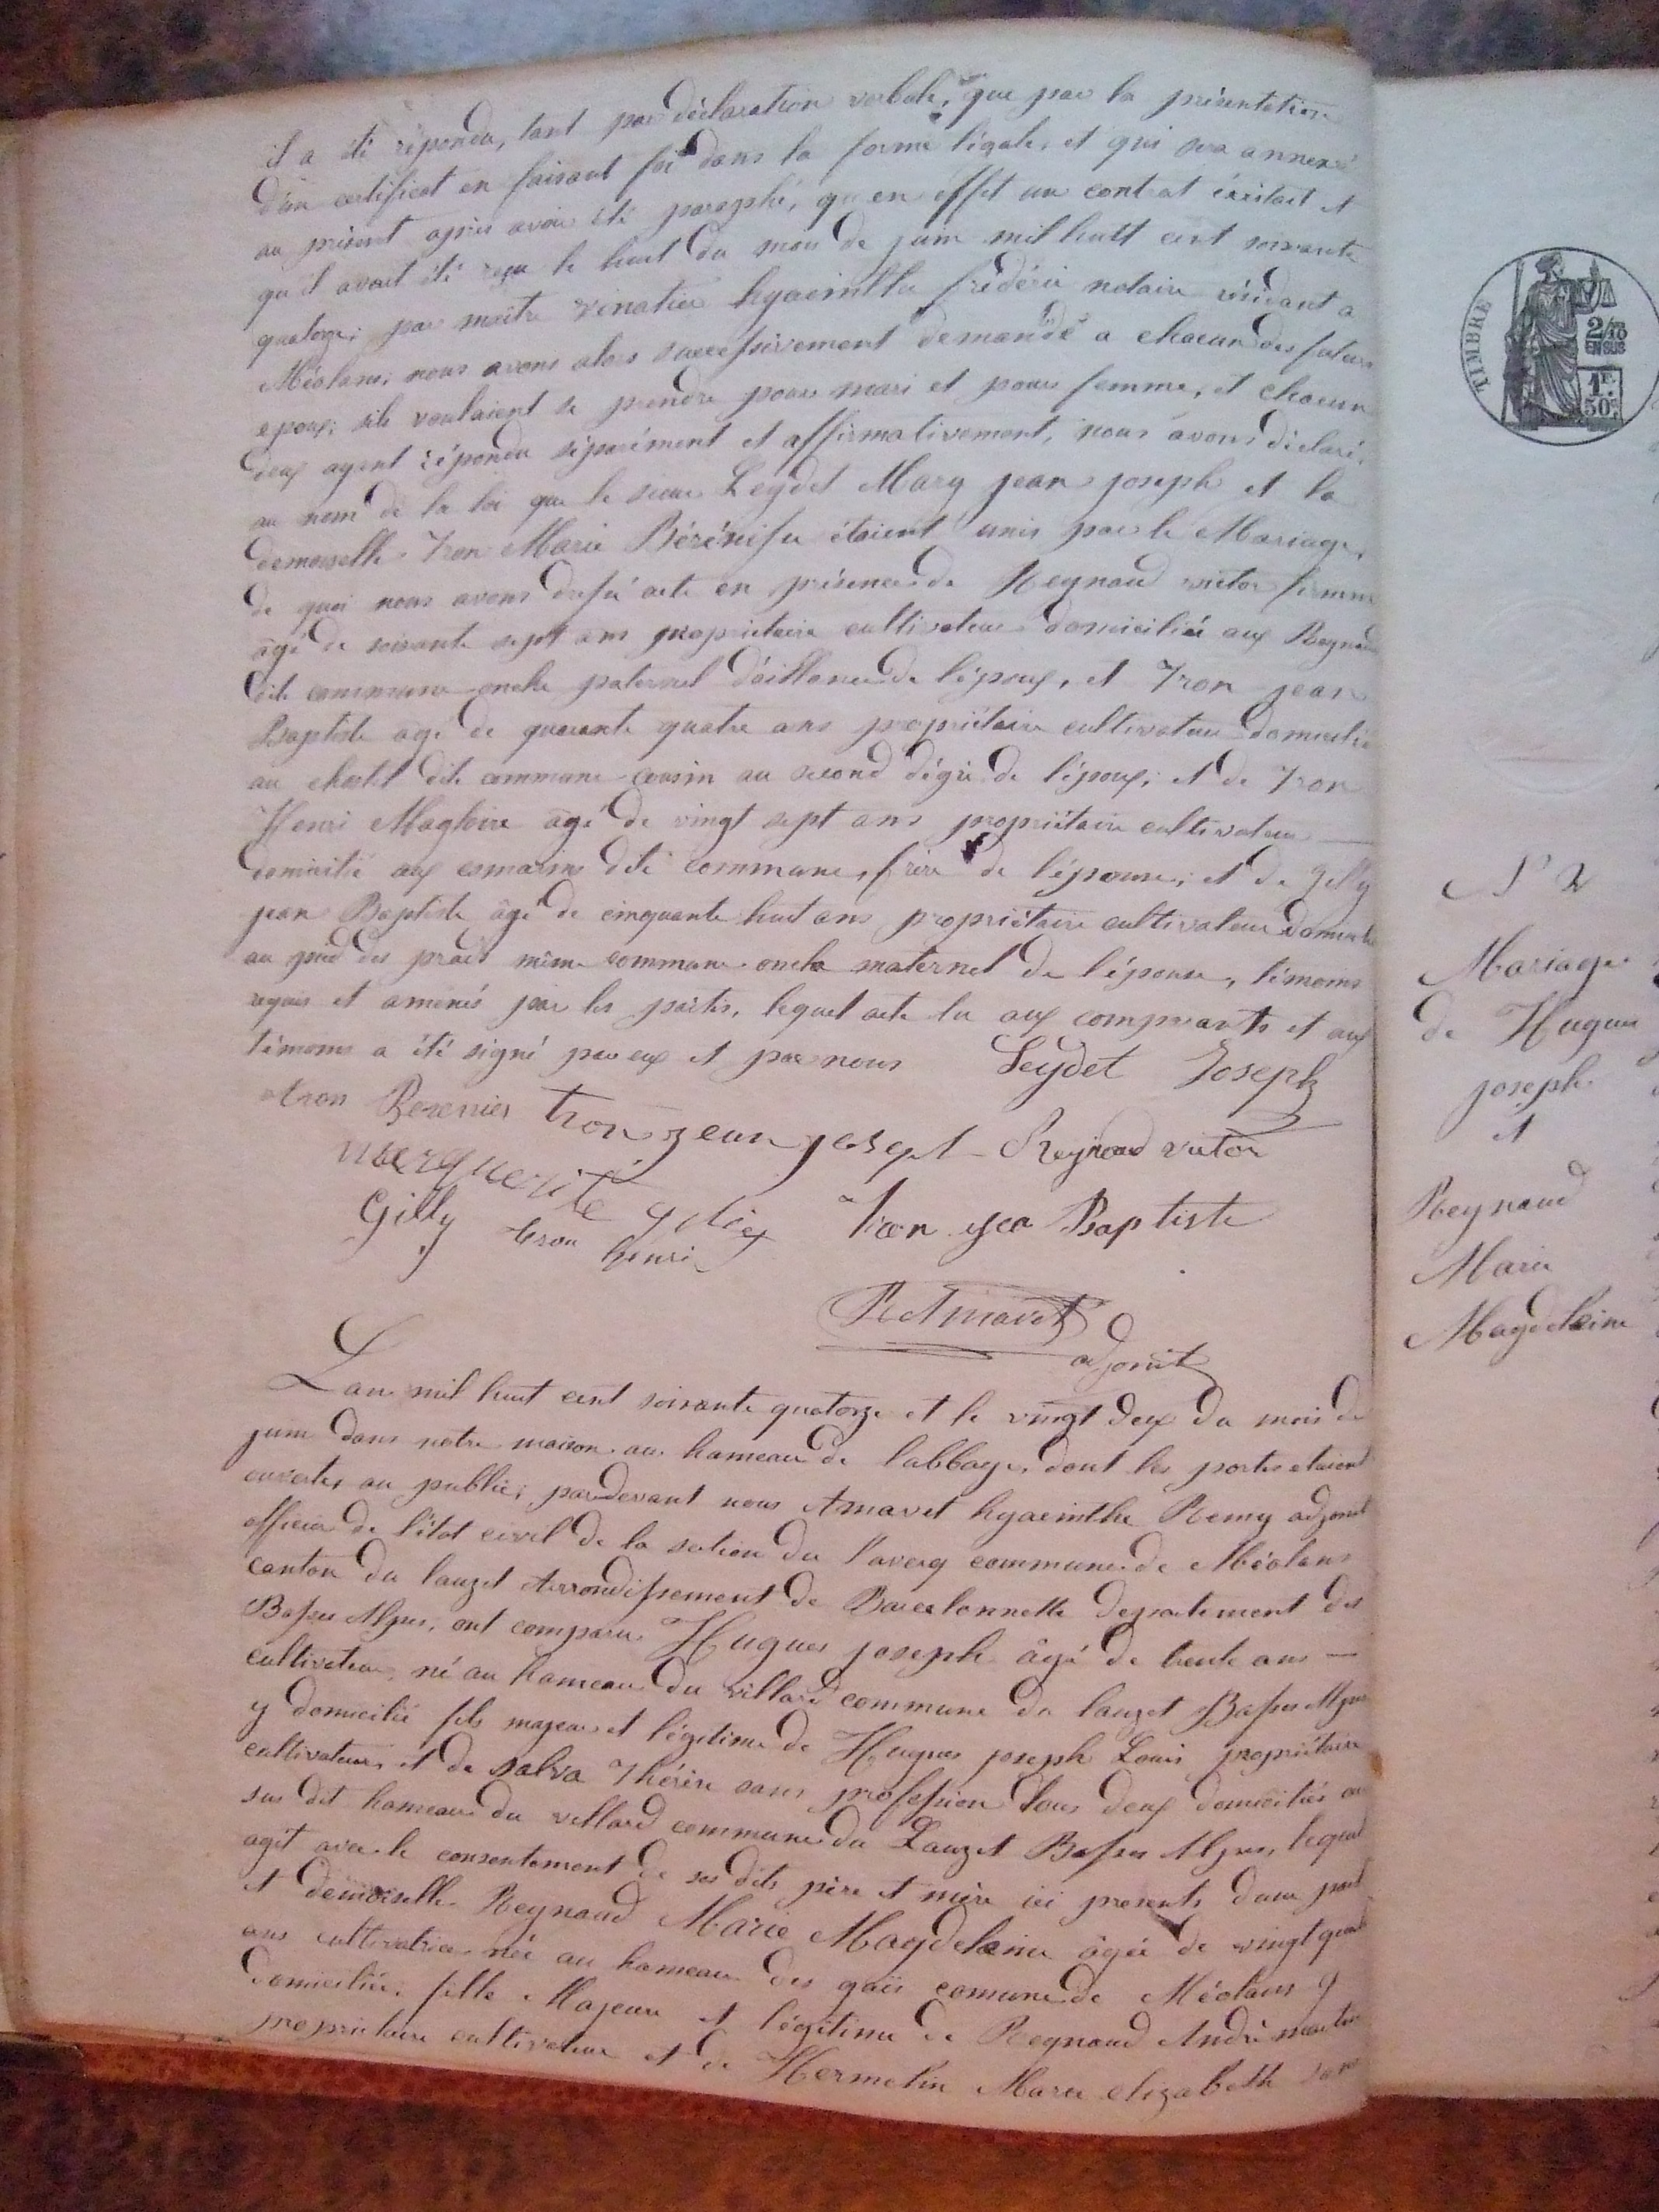 il a été répondu, tant par déclaration verbale, que par la présentation
d'un certificat en faisant foi dans la forme légale, et qui sera annexé
au présent après avoir été paraphé, qu'en effet un contrat éxistait et
qu'il avait été reçu le huit du mois de juin mil huit cent soixante
quatorze; par maître vinatier hyacinthe frédéric notaire résidant a
Méolans; nous avons alors successivement demandé a chacun des futurs
epoux; sils voulaient se prendre pour mari et pour femme, et chacun
deux ayant répondu séparément et affirmativement, nous avons déclaré,
au nom de la loi que le sieur Leydet Mary jean joseph et la
demoiselle Tron Marie Bérénisse étaient unis par le Mariage,
de quoi nous avons dressé acte en présence de Reynaud victor firmin
âgé de soixante sept ans propriétaire cultivateur domicilié aux Reynauds
dite commune oncle paternel d'aillance de l'époux, et Tron jean
Baptiste âgé de quarante quatre ans propriétaire cultivateur domicilié
au chastel dite commune cousin au second dégré de l'époux; et de Tron
Henri Magloire âgé de vingt sept ans propriétaire cultivateur
domicilié aux esmarins dite commune, frère de l'épouse; et de Gilly
jean Baptiste âgé de cinquante huit ans propriétaire cultivateur domicilié
au pied des prats même commune oncle maternel de l'épouse, témoins
requis et aménés par les parties, lequel acte lu aux comparants et aux
témoins a été signé par eux et par nous Leydet Joseph
tron Berenies tron jean josept Reynaud victor
marguerite
Gilly tron henri Tron jea Baptiste
R Amavet
adjoint
Lan mil huit cent soixante quatorze et le vingt deux du mois de
juin dans notre maison au hameau de labbaye, dont les portes etaient
ouvertes au public; pardevant nous Amavet hyacinthe Remy adjoint
officier de l'état civil de la section du laverq commune de Méolans
canton du lauzet Arrondissement de Barcelonnette département des
Basses Alpes, ont comparu Hugues joseph âgé de trente ans
cultivateur, né au hameau du villard commune du lauzet Basses Alpes
y domicilié fils majeur et légitime de Hugues joseph Louis propriétaire
cultivateur, et de Salva Thérèse sans profession tous deux domiciliés au
sus dit hameau du villard commune du Lauzet Basses Alpes, lequel
agit avec le consentement de ses dits père et mère ici présents, dune part
et demoiselle Reynaud Marie Magdelaine âgée de vingt quatre
ans cultivatrice née au hameau des gaïs comune de Méolans y
domiciliée, fille Majeure et légitime de Reynaud André martin
propriétaire cultivateur et de Hermelin Marie elizabeth sans
TIMBRE
2/10
EN SUS
1F.
50c.
N° 2
Mariage
de Hugues
joseph
et
Reynaud
Marie
Magdelaine